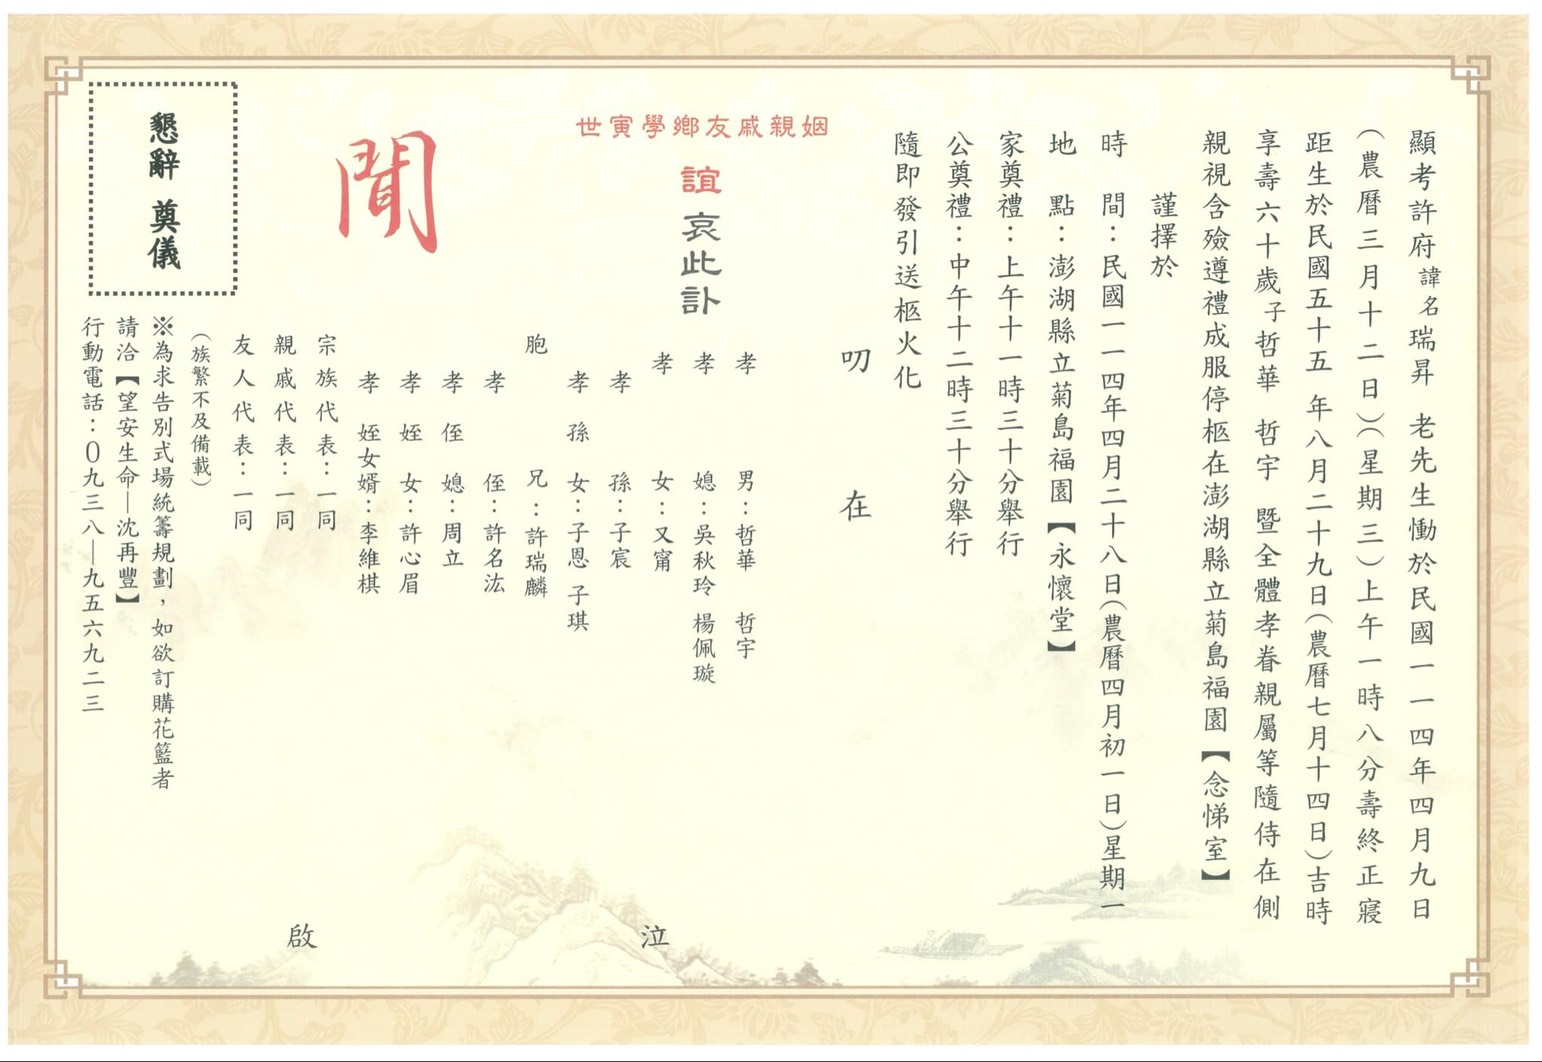 顯考許府諱名瑞昇 老先生慟於民國一一四年四月九日
(農曆三月十二日)(星期三)上午一時八分壽終正寢
距生於民國五十五 年八月二十九日(農曆七月十四日)吉時
享壽六十歲子哲華 哲宇 暨全體孝眷親屬等隨侍在側
親視含殮遵禮成服停柩在澎湖縣立菊島福園【念悌室】
謹擇於
時 間:民國一一四年四月二十八日(農曆四月初一日)星期一
地 點:澎湖縣立菊島福園【永懷堂】
家奠禮:上午十一時三十分舉行
公奠禮:中午十二時三十分舉行
隨即發引送柩火化
叨 在
姻親戚友鄉學寅世
誼 哀此訃
聞
孝 男:哲華 哲宇
孝 媳:吳秋玲 楊佩璇
孝 女:又甯
孝 孫:子宸
孝 孫 女:子恩 子琪
胞 兄:許瑞麟
孝 侄:許名汯
孝 侄 媳:周立
孝 姪 女:許心眉
孝 姪女婿:李維棋
宗族代表:一同
親戚代表:一同
友人代表:一同
(族繁不及備載)
泣 啟
懇辭 奠儀
※為求告別式場統籌規劃,如欲訂購花籃者
請洽【望安生命—沈再豐】
行動電話:0九三八—九五六九二三